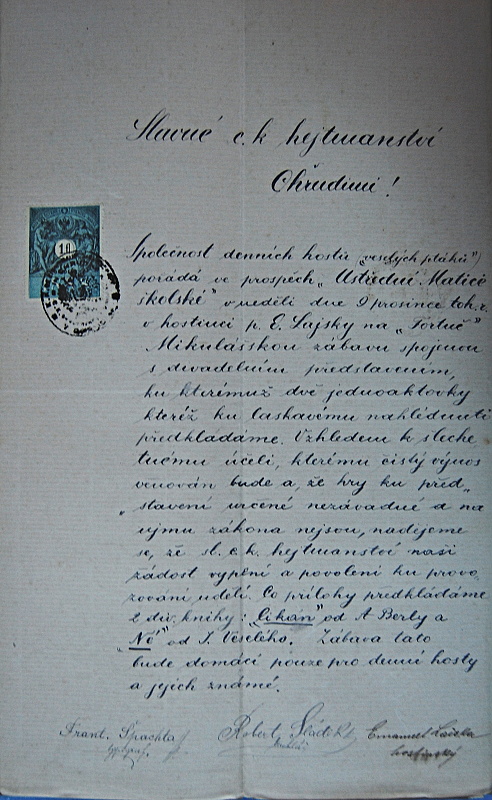 Slavné c. k. hejtmanství
Chrudimi!
1 fl
Společnost denních hostů (veselých ptáků)
pořádá ve prospěch „Ústřední Matice
školské" v neděli dne 9 prosince toh. r.
v hostinci p. E. Lajsky na „Fortuě"
Mikulášskou zábavu spojenou
s divadelním představením,
ku kterémuž dvě jednoaktovky
kteréž ku laskavému nahlédnutí
předkládáme. Vzhledem k šleche
tnému účeli, kterému čistý výnos
věnován bude a, že hry ku před„
„stavení určené nezávadné a na
ujmu zákona nejsou, nadějeme
se, že sl. c. k. hejtmanství naší
žádost vyplní a povolení ku provo„
zování udělí. Co přílohy předkládáme
2 div. knihy: „Cikán" od A Berly a
„Ne" od J. Veselého. Zábava tato
bude domácí pouze pro denní hosty
a jejich známé.
Frant. Špachta Robert Sládek Emanuel Lajska
typograf. hostinský